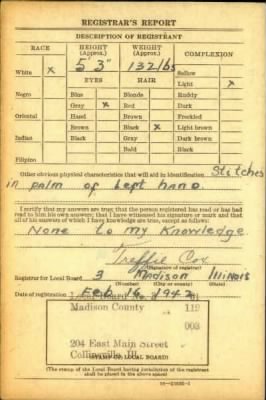 REGISTRAR'S REPORT
DESCRIPTION OF REGISTRANT
RACE HEIGHT (Approx.) WEIGHT (Approx.) COMPLEXION
White x 5' 3" 132 lbs Sallow
EYES HAIR Light x
Negro Blue Blonde Ruddy
Gray x Red Dark
Oriental Hazel Brown Freckled
Brown Black x Light brown
Indian Black Gray Dark brown
Bald Black
Filipino
Other obvious physical characteristics that will aid in identification Stitches
in palm of left hand.
I certify that my answers are true; that the person registered has read or has had
read to him his own answers; that I have witnessed his signature or mark and that
all of his answers of which I have knowledge are true, except as follows:
None to my Knowledge
Treffie Cox
(Signature of registrar)
Registrar for Local Board 3 Madison Illinois
(Number) (City or county) (State)
Date of registration Feb 16 1942
Madison County 119
003
204 East Main Street
Collinsville, Ill.
(STAMP OF LOCAL BOARD)
(The stamp of the Local Board having jurisdiction of the registrant
shall be placed in the above space.)